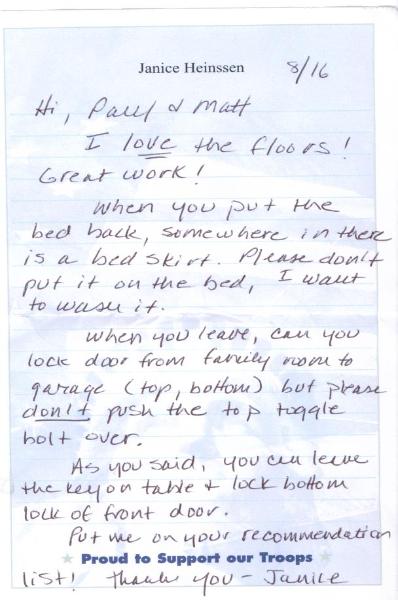 Janice Heinssen
8/16
Hi, Paul & Matt
I love the floors!
Great work!
When you put the
bed back, somewhere in there
is a bed skirt. Please don't
put it on the bed, I want
to wash it.
When you leave, can you
lock door from family room to
garage (top, bottom) but please
don't push the top toggle
bolt over.
As you said, you can leave
the key on table & lock bottom
lock of front door.
Put me on your recommendation
Proud to Support our Troops
list! Thank you - Janice